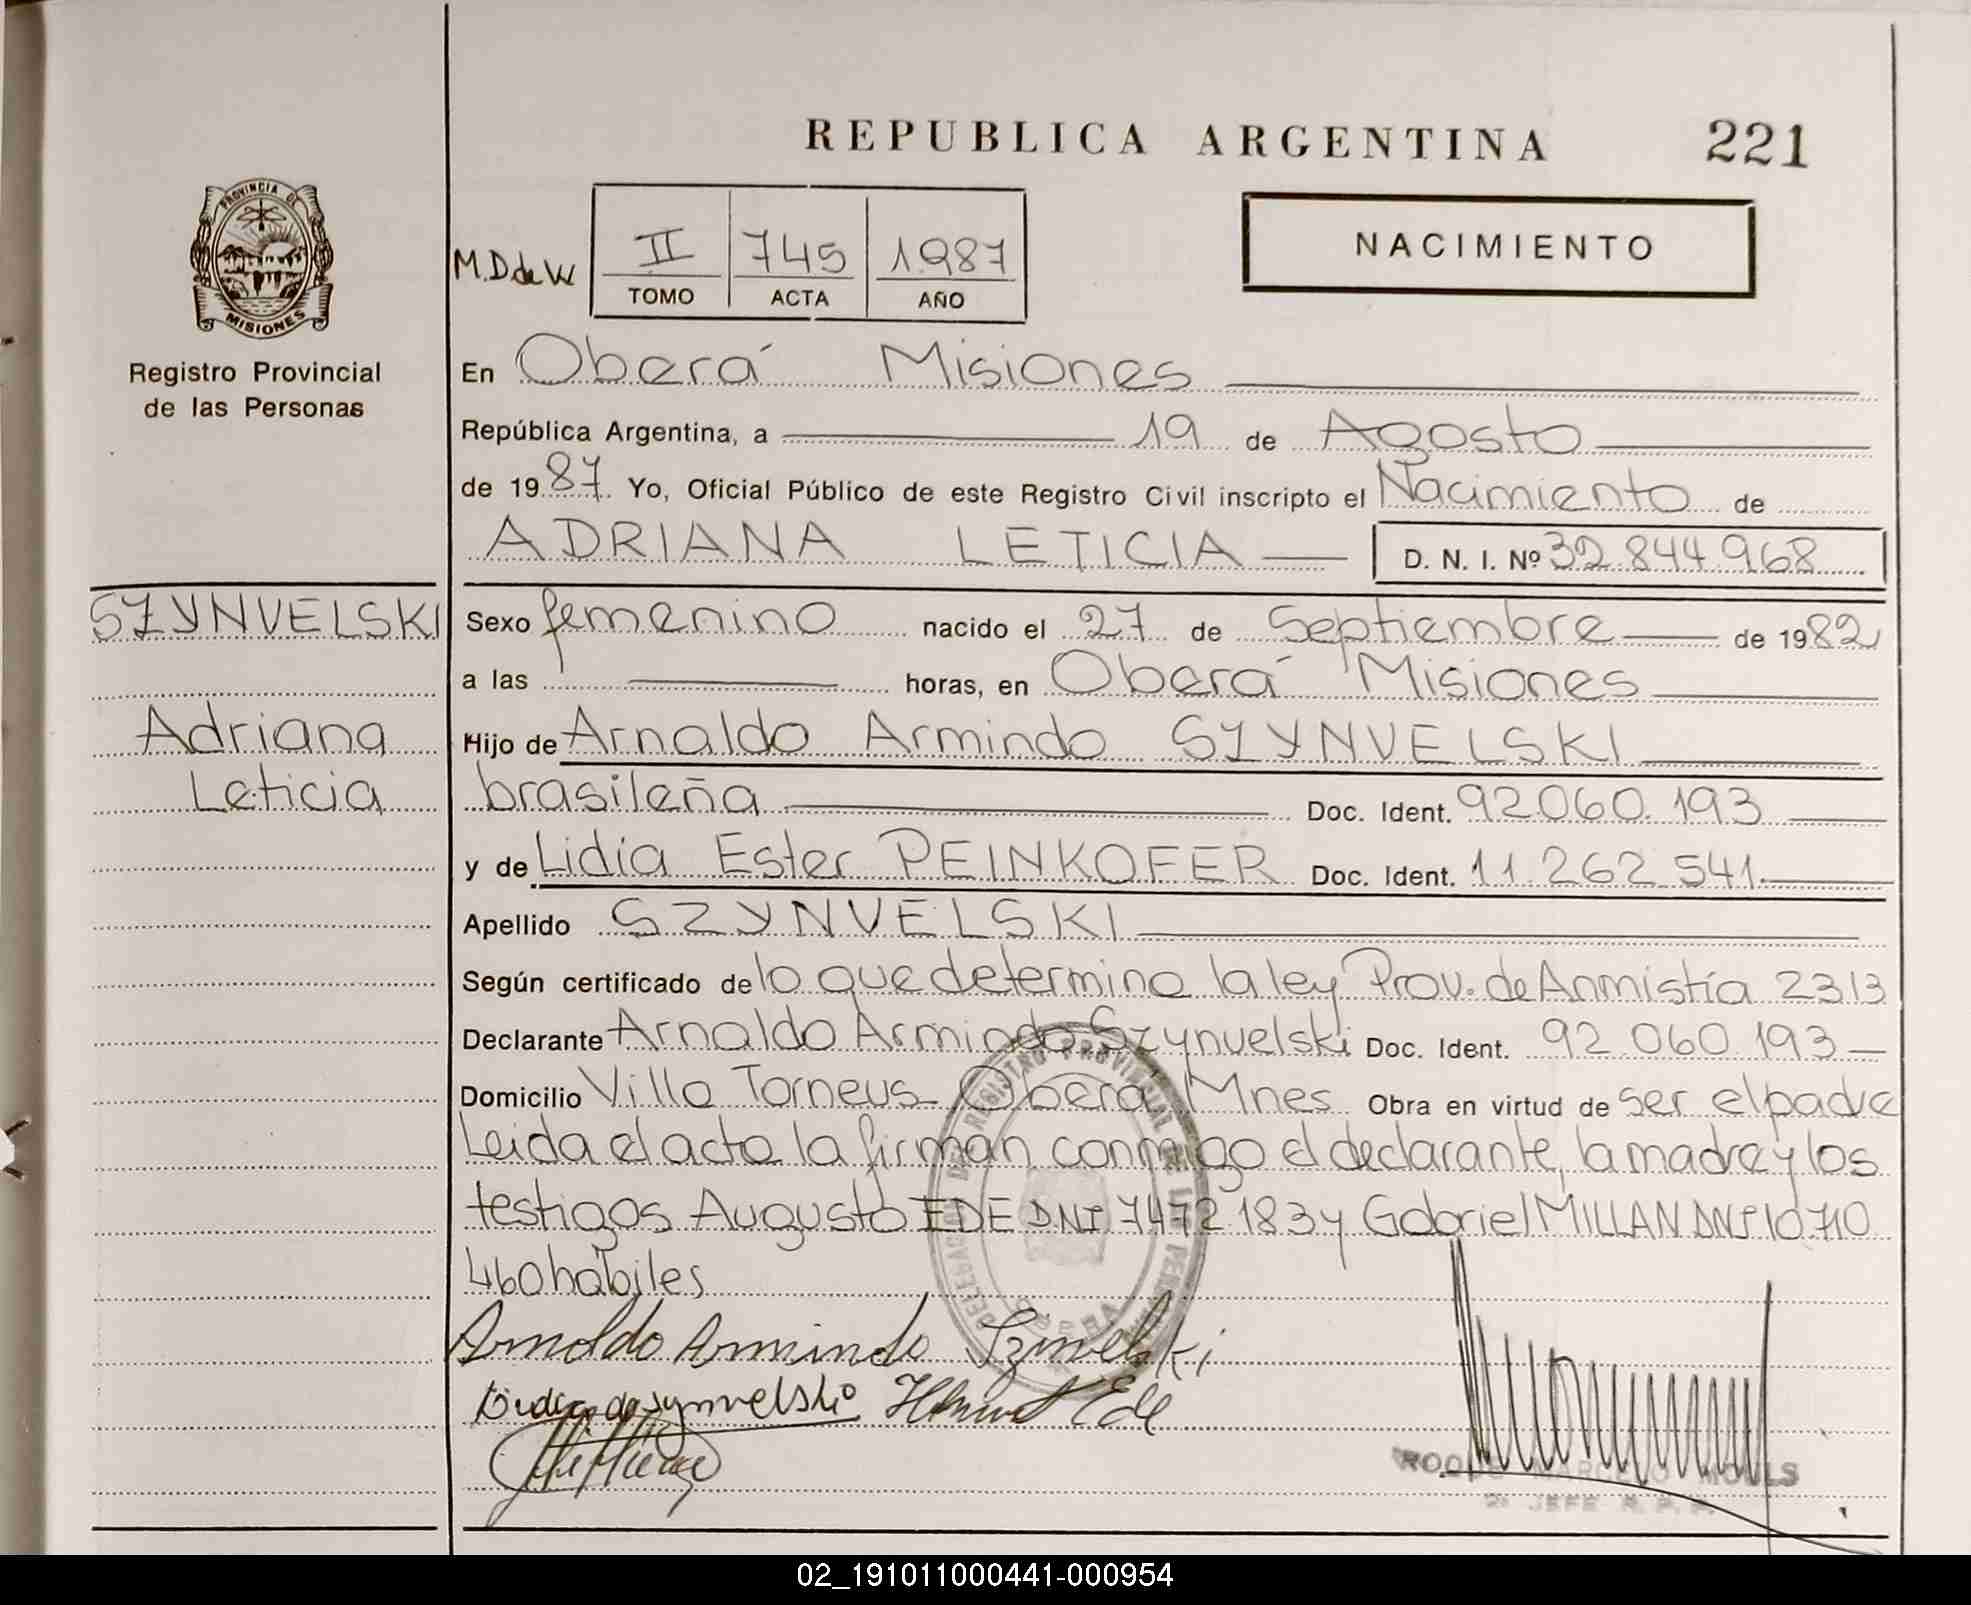 REPUBLICA ARGENTINA 221
PROVINCIA DE
MISIONES
Registro Provincial
de las Personas
M.D de W
II 745 1987
TOMO ACTA AÑO
NACIMIENTO
En Oberá Misiones
República Argentina, a 19 de Agosto
de 1987. Yo, Oficial Público de este Registro Civil inscripto el Nacimiento de
ADRIANA LETICIA D. N. I. Nº 32.844.968
SZYNVELSKI
Adriana
Leticia
Sexo femenino nacido el 27 de Septiembre de 1982
a las horas, en Oberá Misiones
Hijo de Arnaldo Armindo SZYNVELSKI
brasileña Doc. Ident. 92.060.193
y de Lidia Ester PEINKOFER Doc. Ident. 11.262.541
Apellido SZYNVELSKI
Según certificado de lo que determina la ley Prov. de Anmistía 2313
Declarante Arnaldo Armindo Szynvelski Doc. Ident. 92.060.193
Domicilio Villa Torneus Oberá Mnes. Obra en virtud de ser el padre
Leida el acta la firman conmigo el declarante, la madre y los
testigos Augusto EDE DNI 7472183 y Gabriel MILLAN DNI 10 710
460 habiles
Arnoldo Armindo Szinvelski
Ede
JEFE R. P. P.
02_191011000441-000954